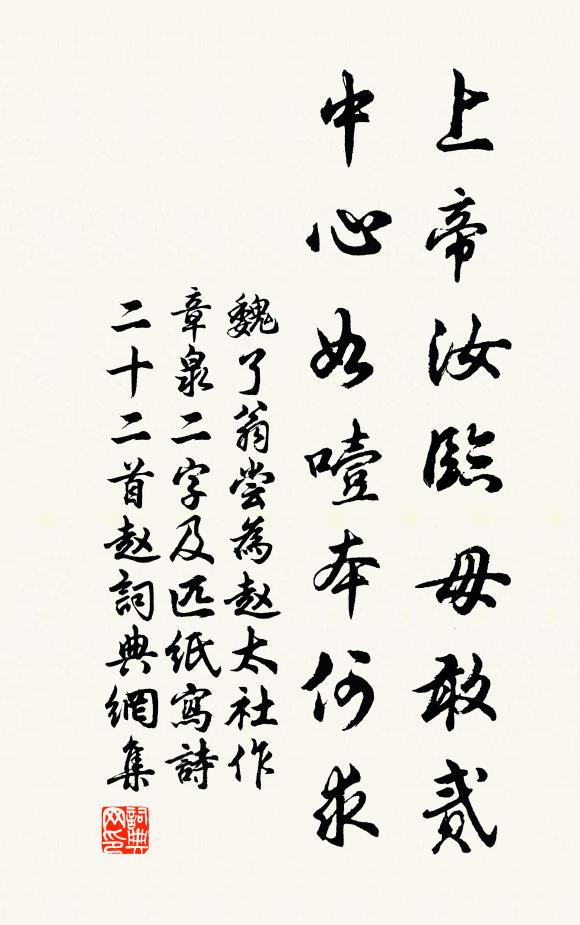 上帝汝臨毋敢貳
中心如噎本何求
魏了翁嘗為趙太社作
章泉二字及匹紙寫詩
二十二首趙詞典網集
詞典網印